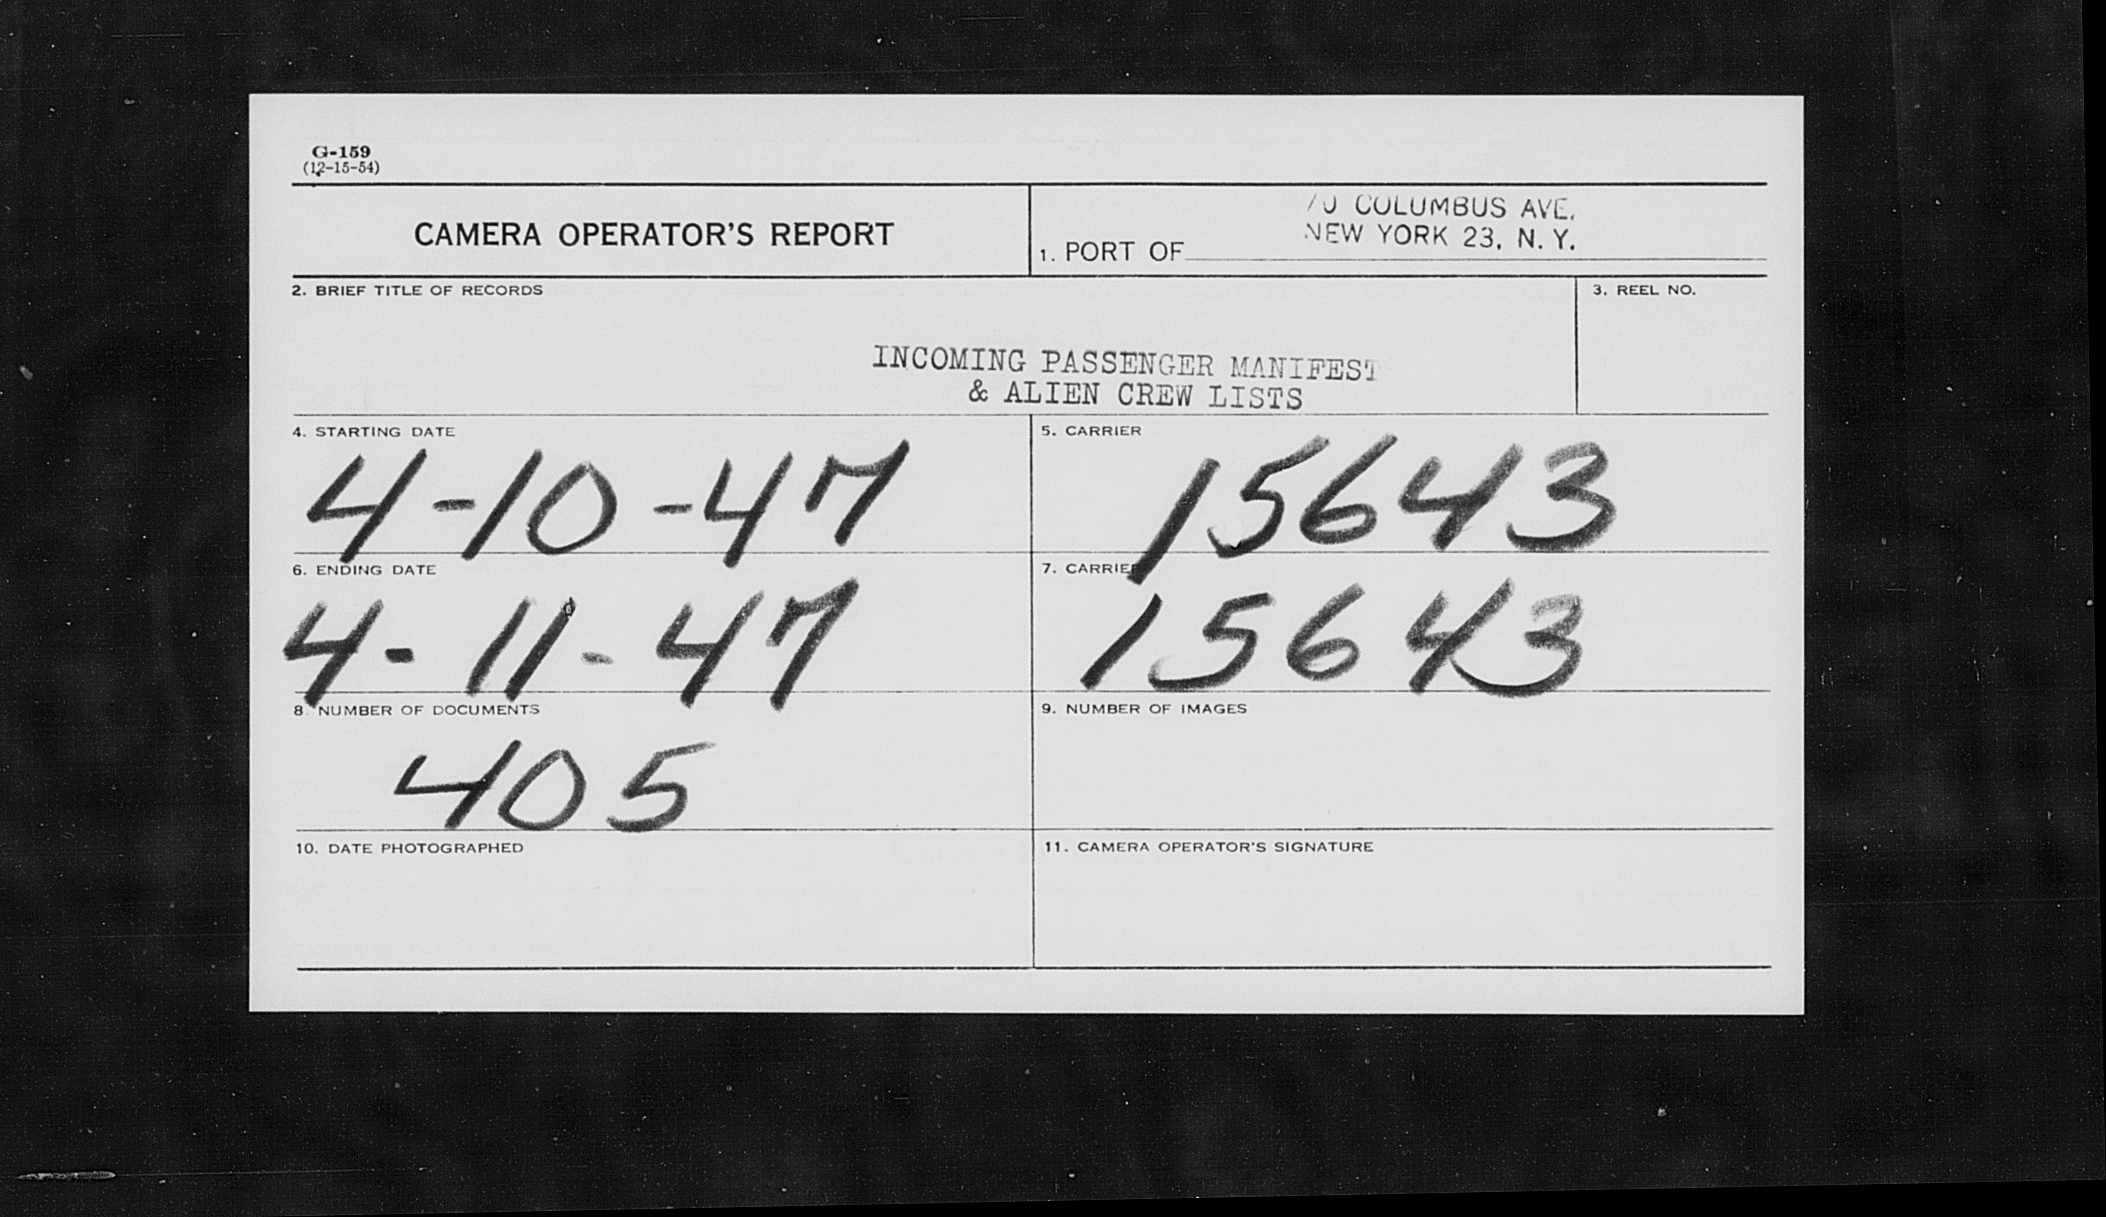 G-159
(12-15-54)
CAMERA OPERATOR'S REPORT
70 COLUMBUS AVE.
NEW YORK 23, N. Y.
1. PORT OF
2. BRIEF TITLE OF RECORDS
3. REEL NO.
INCOMING PASSENGER MANIFEST
& ALIEN CREW LISTS
4. STARTING DATE
4-10-47
5. CARRIER
15643
6. ENDING DATE
4-11-47
7. CARRIER
15643
8. NUMBER OF DOCUMENTS
405
9. NUMBER OF IMAGES
10. DATE PHOTOGRAPHED
11. CAMERA OPERATOR'S SIGNATURE